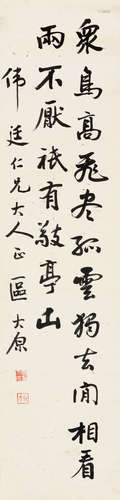 眾鳥高飛盡孤雲獨去閒相看
兩不厭祇有敬亭山
偉廷仁兄大人正 區大原